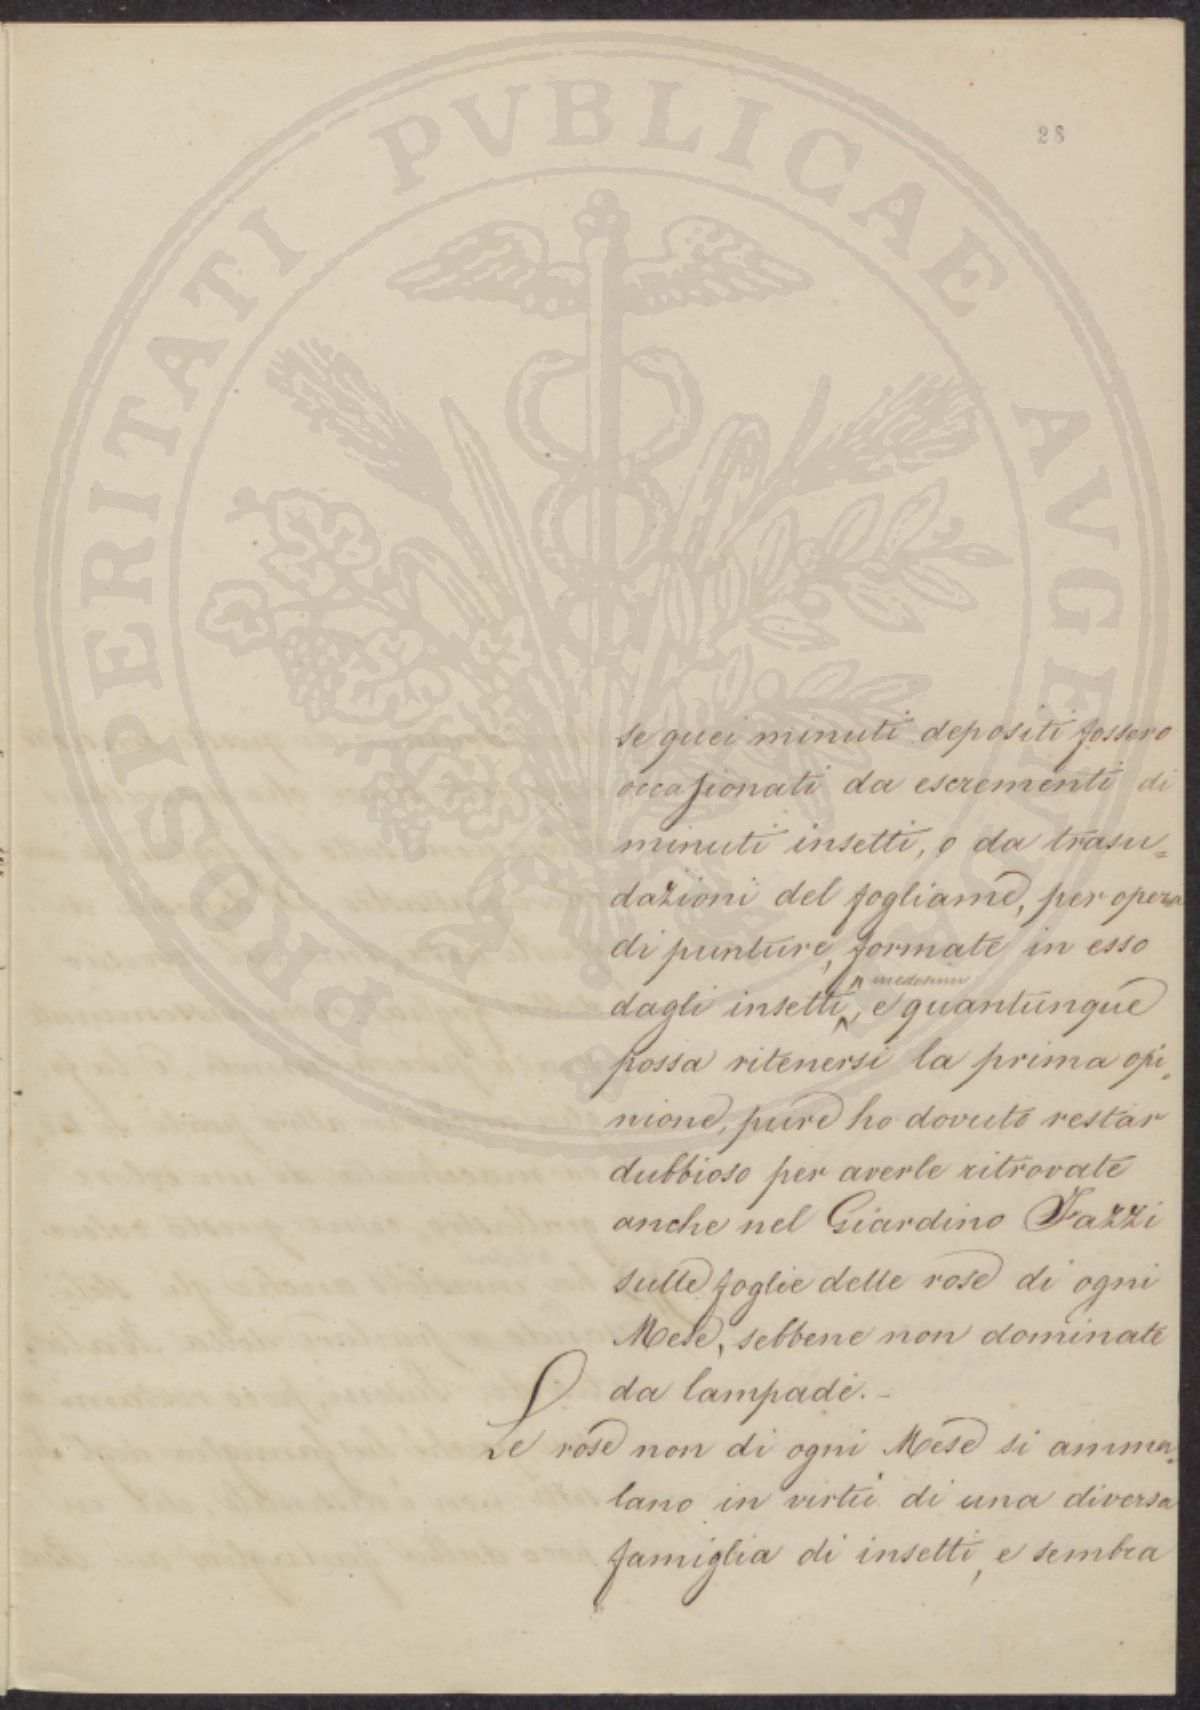 28
PROSPERITATI PVBLICAE AVGENDAE
se quei minuti depositi fossero
occasionati da escrementi di
minuti insetti, o da trasu=
dazioni del fogliame, per opera
di punture, formate in esso
medesimi
dagli insetti, e quantunque
possa ritenersi la prima opi=
nione, pure ho dovuto restar
dubbioso per averle ritrovate
anche nel Giardino Fazzi
sulle foglie delle rose di ogni
Mese, sebbene non dominate
da lampade.-
Le rose non di ogni Mese si amma=
lano in virtù di una diversa
famiglia di insetti, e sembra